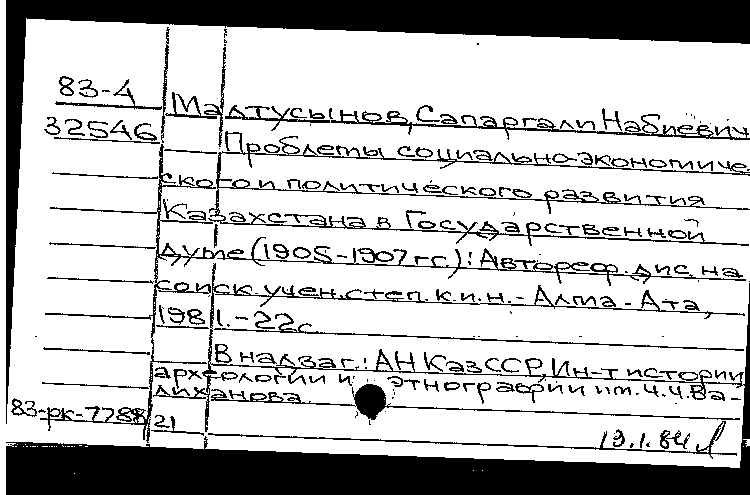 83-4
Малтусынов, Сапаргали Набиевич
32546
Проблемы социально-экономиче-
ского и политического развития
Казахстана в Государственной
думе (1905-1907 гг.): Автореф. дис. на
соиск. учен. степ. к.и.н. - Алма-Ата,
1981. - 22с.
В надзаг.: АН КазССР, Ин-т истории,
археологии и этнографии им. Ч.Ч.Ва-
лиханова.
83-рк-7788
21
19.1.84